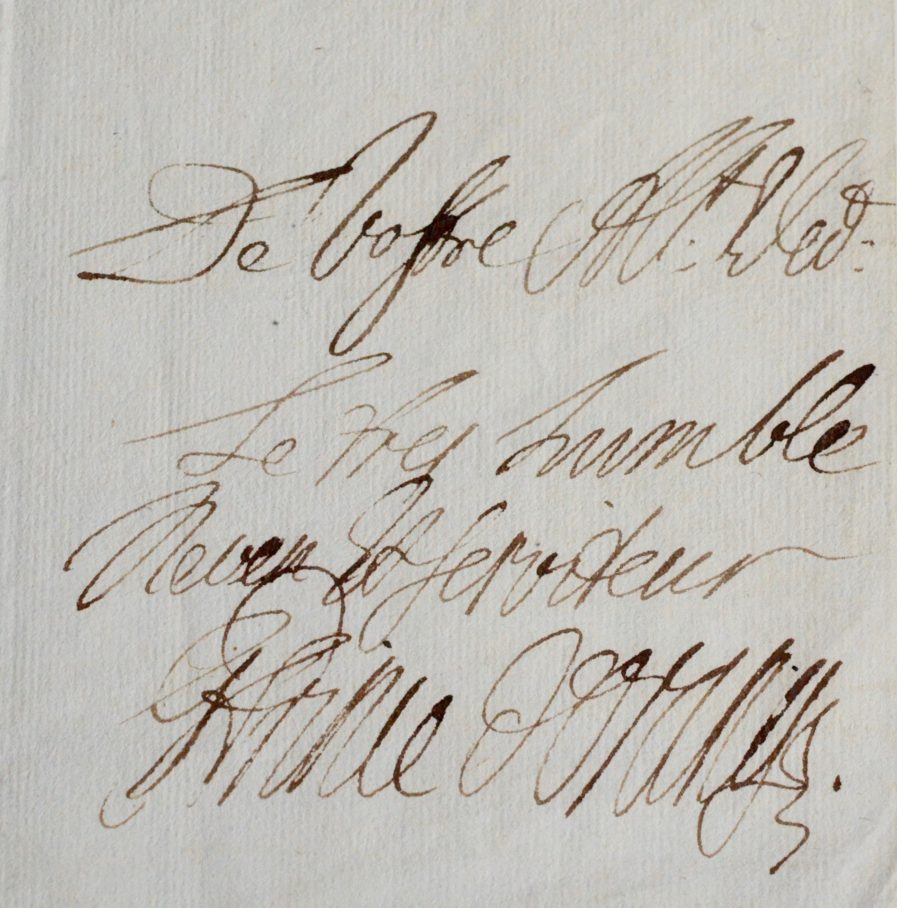 De Vostre Alt: Elect:
Le tres humble
Neveu Et serviteur
Prince d'Orange.